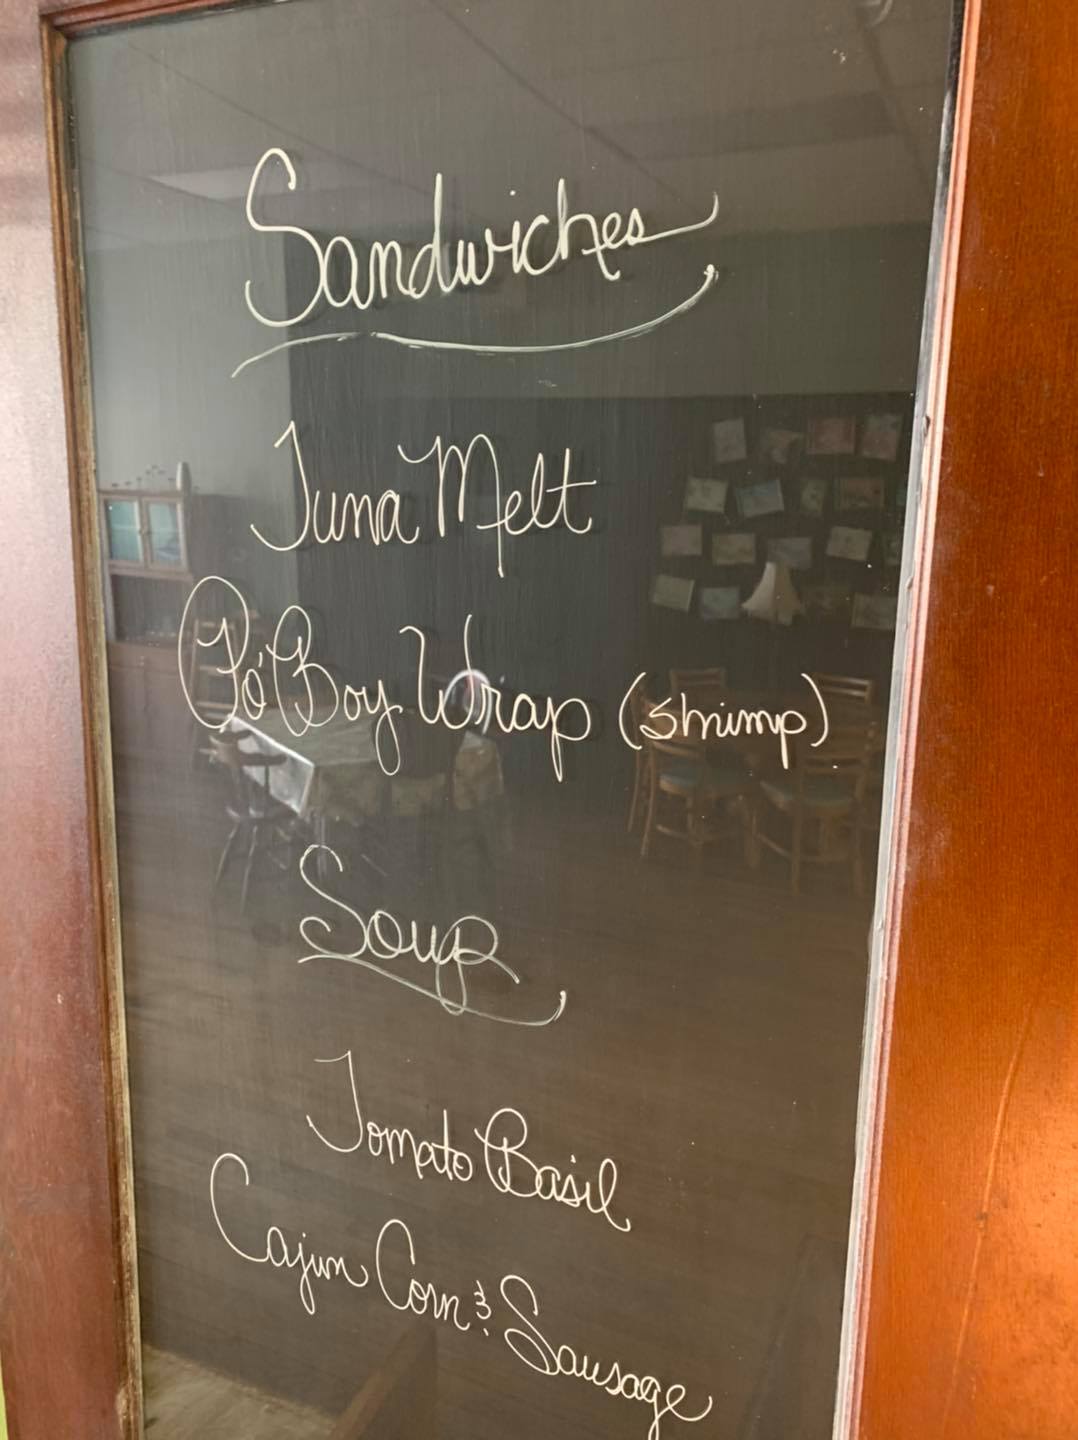 Sandwiches
Tuna Melt
Po' Boy Wrap (shrimp)
Soup
Tomato Basil
Cajun Corn & Sausage